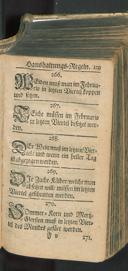 Haushaltungs-Regeln. 119
266.
Weiden muß man im Februa-
rio im letzten Viertel koppen
und setzen.
267.
Teiche müssen im Februario
im letzten Viertel besetzet wer-
den.
268.
Der Wein muß im letzten Vier-
tel und wenn ein heller Tag
ist abgezogen werden.
269.
Die Zucht-Kälber welche man
absetzen will, müssen im letzten
Viertel geschnitten werden.
270.
Sommer-Korn und Mertz-
Gersten muß im letzten Vier-
tel des Mondes gesäet werden.
271.